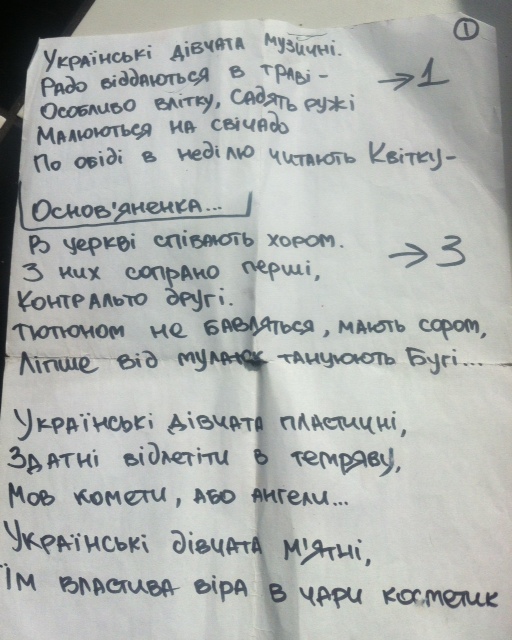 ①
Українські дівчата музичні.
Радо віддаються в траві - → 1
Особливо влітку, садять ружі
Малюються на свічадо
По обіді в неділю читають Квітку-
Основ'яненка...
В церкві співають хором. → 3
З них сопрано перші,
контральто другі.
Тютюном не бавляться, мають сором,
Ліпше від мулаток танцюють Бугі...
Українські дівчата пластичні,
Здатні відлетіти в темряву,
Мов комети, або ангели...
Українські дівчата м'ятні,
Їм властива віра в чари косметик